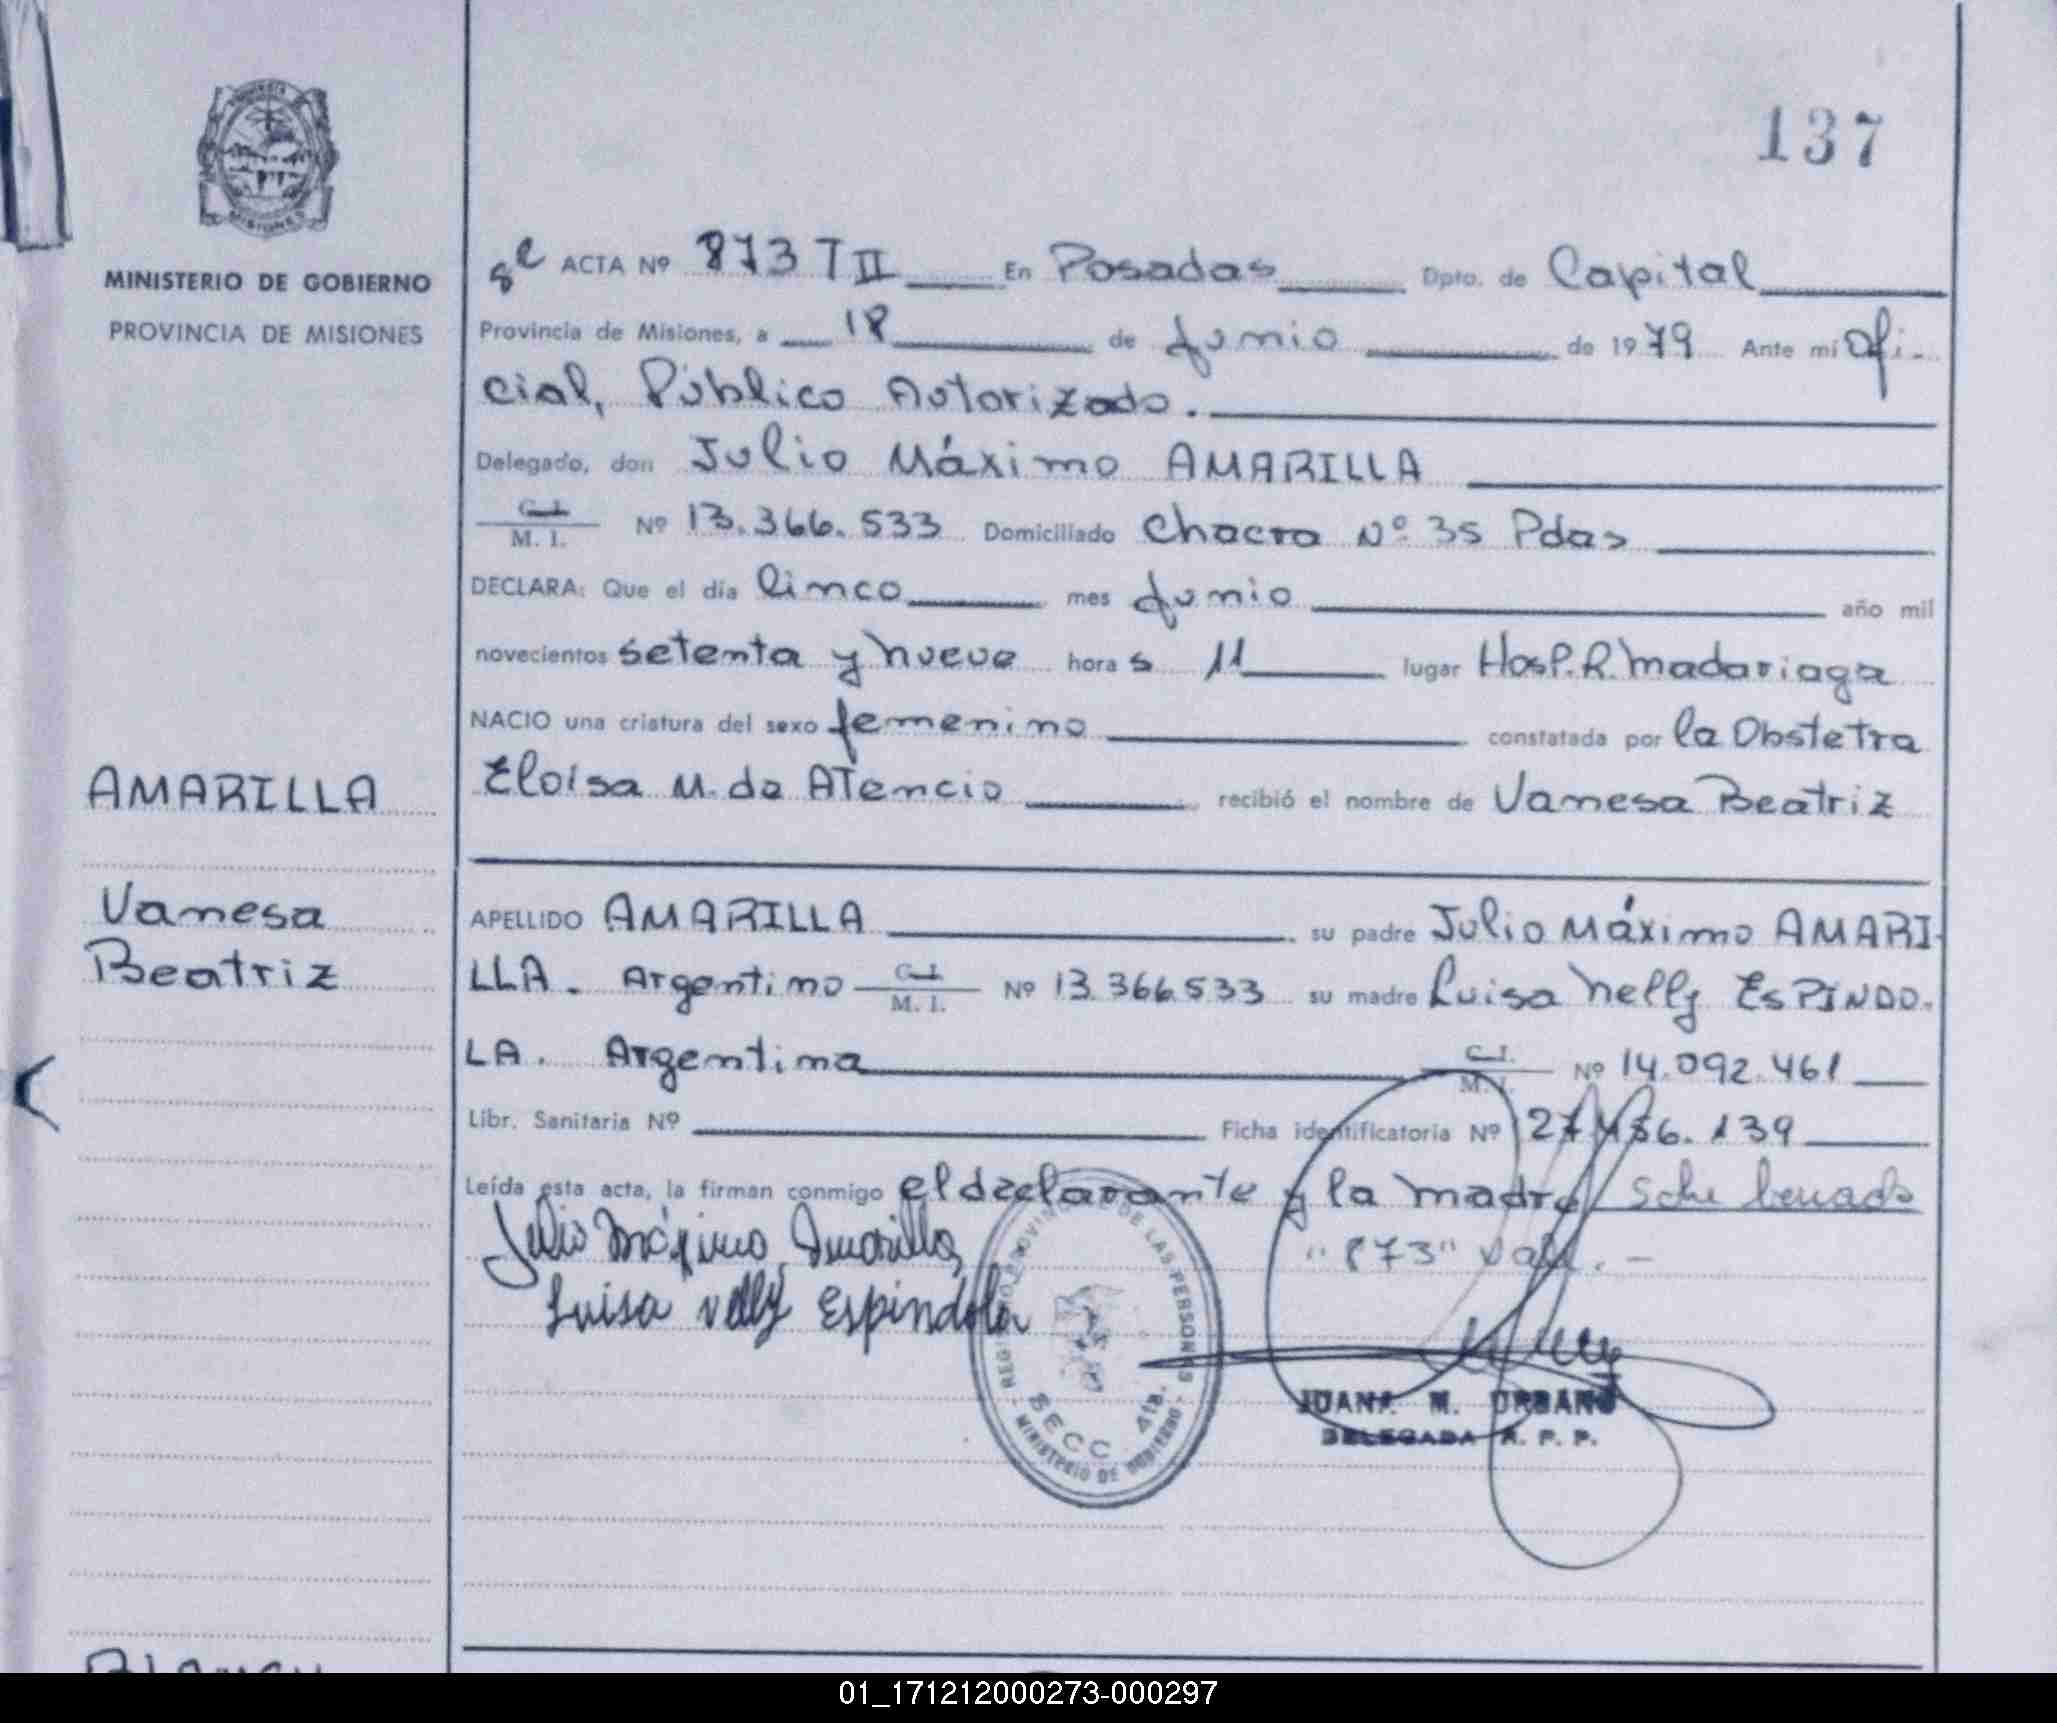 137
MINISTERIO DE GOBIERNO
PROVINCIA DE MISIONES
ACTA Nº 873 T II En Posadas Dpto. de Capital
Provincia de Misiones, a 18 de Junio de 1979 Ante mí Ofi-
cial, Público Autorizado.
Delegado, don Julio Máximo AMARILLA
C. I. M. I. Nº 13.366.533 Domiciliado Chacra Nº 35 Pdas
DECLARA: Que el día Cinco mes Junio año mil
novecientos setenta y nueve horas 11 lugar Hosp. R. Madariaga
NACIO una criatura del sexo femenino constatada por la Obstetra
Eloísa M. de Atencio recibió el nombre de Vanesa Beatriz
AMARILLA
Vanesa
Beatriz
APELLIDO AMARILLA su padre Julio Máximo AMARI-
LLA. Argentino C. I. M. I. Nº 13.366.533 su madre Luisa Nelly ESPINDO-
LA. Argentina C. I. M. I. Nº 14.092.461
Libr. Sanitaria Nº Ficha identificatoria Nº 139
Leída esta acta, la firman conmigo el declarante y la madre
"873" Vale. -
Julio Máximo Amarilla
Luisa Nelly Espindola
REGISTRO PROVINCIAL DE LAS PERSONAS
SECC. 4ta.
MINISTERIO DE GOBIERNO
JUANA M. URBANO
DELEGADA R. P. P.
01_171212000273-000297